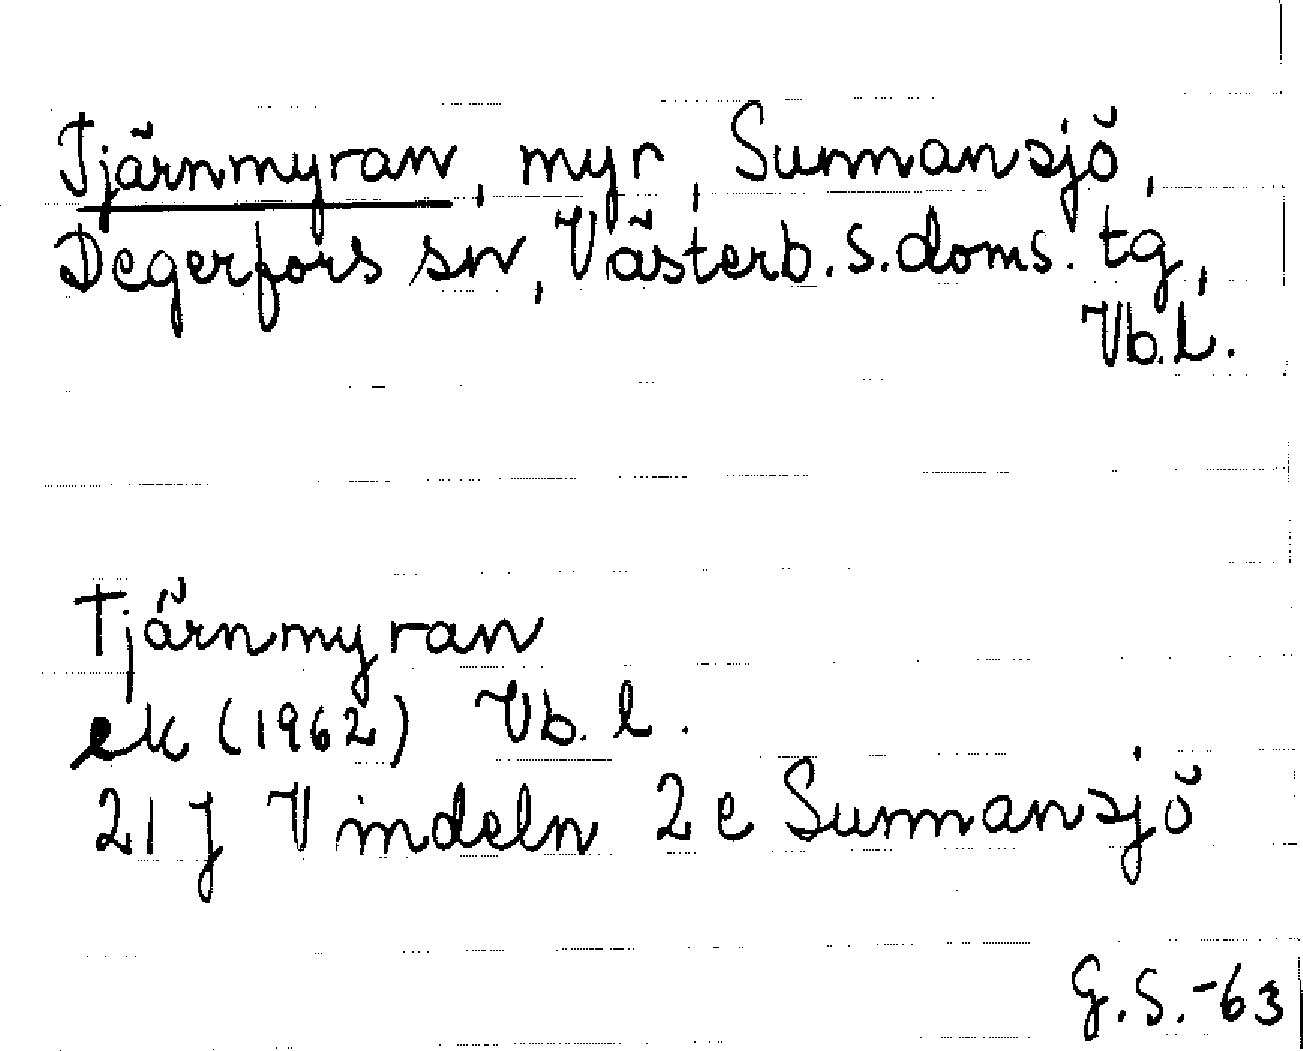 Tjärnmyran, myr, Sunnansjö,
Degerfors sn, Västerb. s. doms. tg,
Vb. l.
Tjärnmyran
ek (1962) Vb. l.
21 J Vindeln 2 e Sunnansjö
G. S. -63